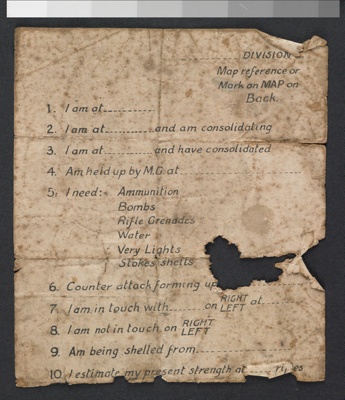 DIVISION
Map reference or
Mark on MAP on
Back.
1. I am at
2. I am at and am consolidating
3. I am at and have consolidated
4. Am held up by M.G. at
5. I need: Ammunition
Bombs
Rifle Grenades
Water
Very Lights
Stokes shells
6. Counter attack forming up
7. I am in touch with on RIGHT LEFT at
8. I am not in touch on RIGHT LEFT
9. Am being shelled from
10. I estimate my present strength at rifles